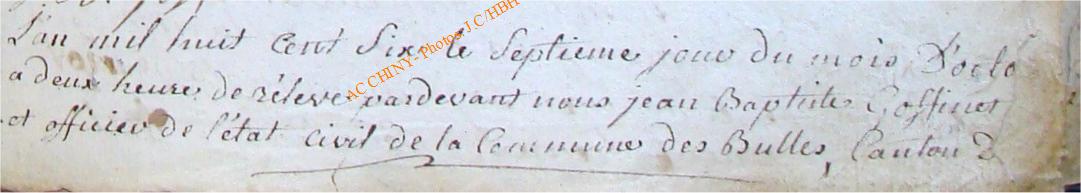 L'an mil huit cent Six le Septieme jour du mois D'octo
a deux heure de rélevé pardevant nous jean Baptiste Goffinet
et officier de l'état Civil de la Commune des Bulles, Canton D
AC CHINY - Photos J.C/HBH